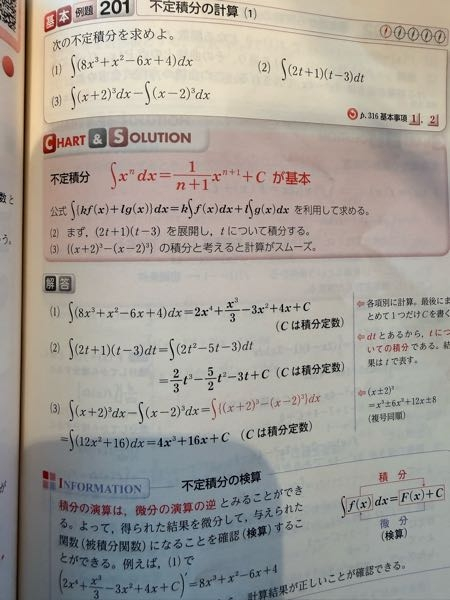 基本 例題 201 不定積分の計算 (1)
次の不定積分を求めよ。
(1) ∫(8x³+x²−6x+4)dx (2) ∫(2t+1)(t−3)dt
(3) ∫(x+2)³dx−∫(x−2)³dx
p.316 基本事項 1, 2
CHART & SOLUTION
不定積分 ∫xⁿdx=1/(n+1) xⁿ⁺¹+C が基本
公式 ∫{kf(x)+lg(x)}dx=k∫f(x)dx+l∫g(x)dx を利用して求める。
(2) まず,(2t+1)(t−3) を展開し,t について積分する。
(3) {(x+2)³−(x−2)³} の積分と考えると計算がスムーズ。
解答
(1) ∫(8x³+x²−6x+4)dx=2x⁴+x³/3−3x²+4x+C
(C は積分定数)
⇦各項別に計算。最後にま
とめて1つだけCを書く
(2) ∫(2t+1)(t−3)dt=∫(2t²−5t−3)dt
=2/3 t³−5/2 t²−3t+C (C は積分定数)
⇦dt とあるから,t につ
いての積分である。結
果は t で表す。
(3) ∫(x+2)³dx−∫(x−2)³dx=∫{(x+2)³−(x−2)³}dx
=∫(12x²+16)dx=4x³+16x+C (C は積分定数)
⇦(x±2)³
=x³±6x²+12x±8
(複号同順)
INFORMATION 不定積分の検算
積分の演算は,微分の演算の逆とみることができ
る。よって,得られた結果を微分して,与えられた
関数(被積分関数)になることを確認(検算)するこ
とができる。例えば,(1)で
(2x⁴+x³/3−3x²+4x+C)′=8x³+x²−6x+4
計算結果が正しいことが確認できる。
積分
∫f(x)dx=F(x)+C
微分
(検算)